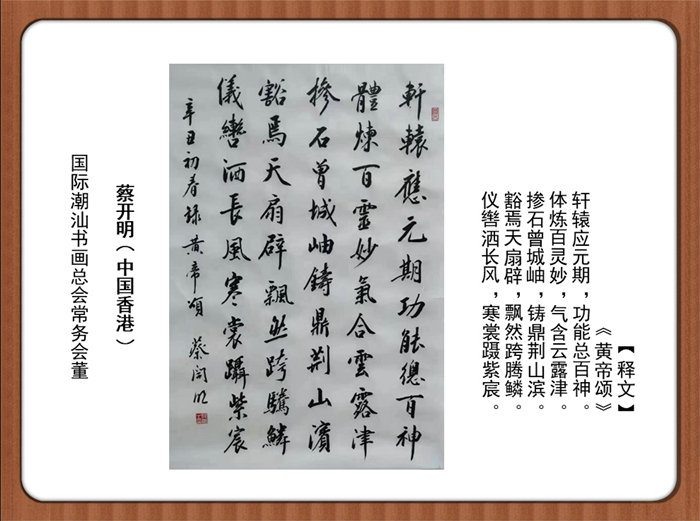 【释文】
《黄帝颂》
轩辕应元期，功能总百神。
体炼百灵妙，气含云露津。
掺石曾城岫，铸鼎荆山滨。
豁焉天扇辟，飘然跨腾鳞。
仪辔洒长风，寒裳蹑紫宸。
軒轅應元期功能總百神
體煉百靈妙氣合雲露津
摻石曾城岫鑄鼎荆山濱
豁焉天扇辟飄然跨騰鱗
儀轡洒長風寒裳躡紫宸
辛丑初春録黄帝頌 蔡開明
蔡开明（中国香港）
国际潮汕书画总会常务会董